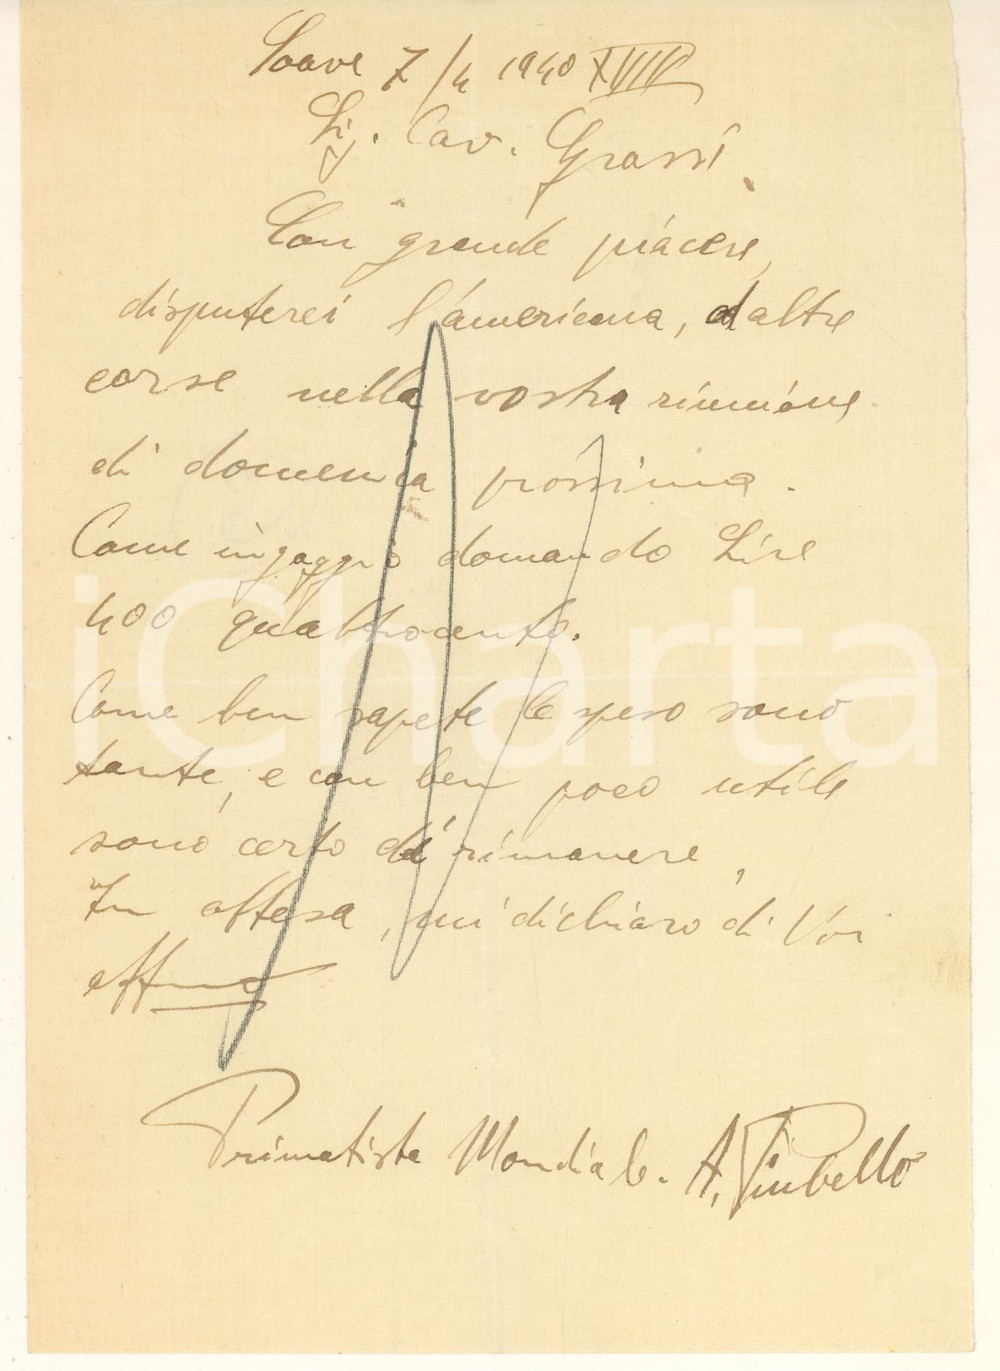 Soave 7/4 1940 XVIII°
Sig. Cav. Grassi.
Con grande piacere,
disputerei l'americana, d altre
corse nella vostra riunione
di domenica prossima.
Come ingaggio domando Lire
400 quattrocento.
Come ben sapete le spese sono
tante, e con ben poco utile
sono certo di rimanere,
In attesa, mi dichiaro di Voi
aff.mo
Primatista Mondiale. A. Piubello
iCharta